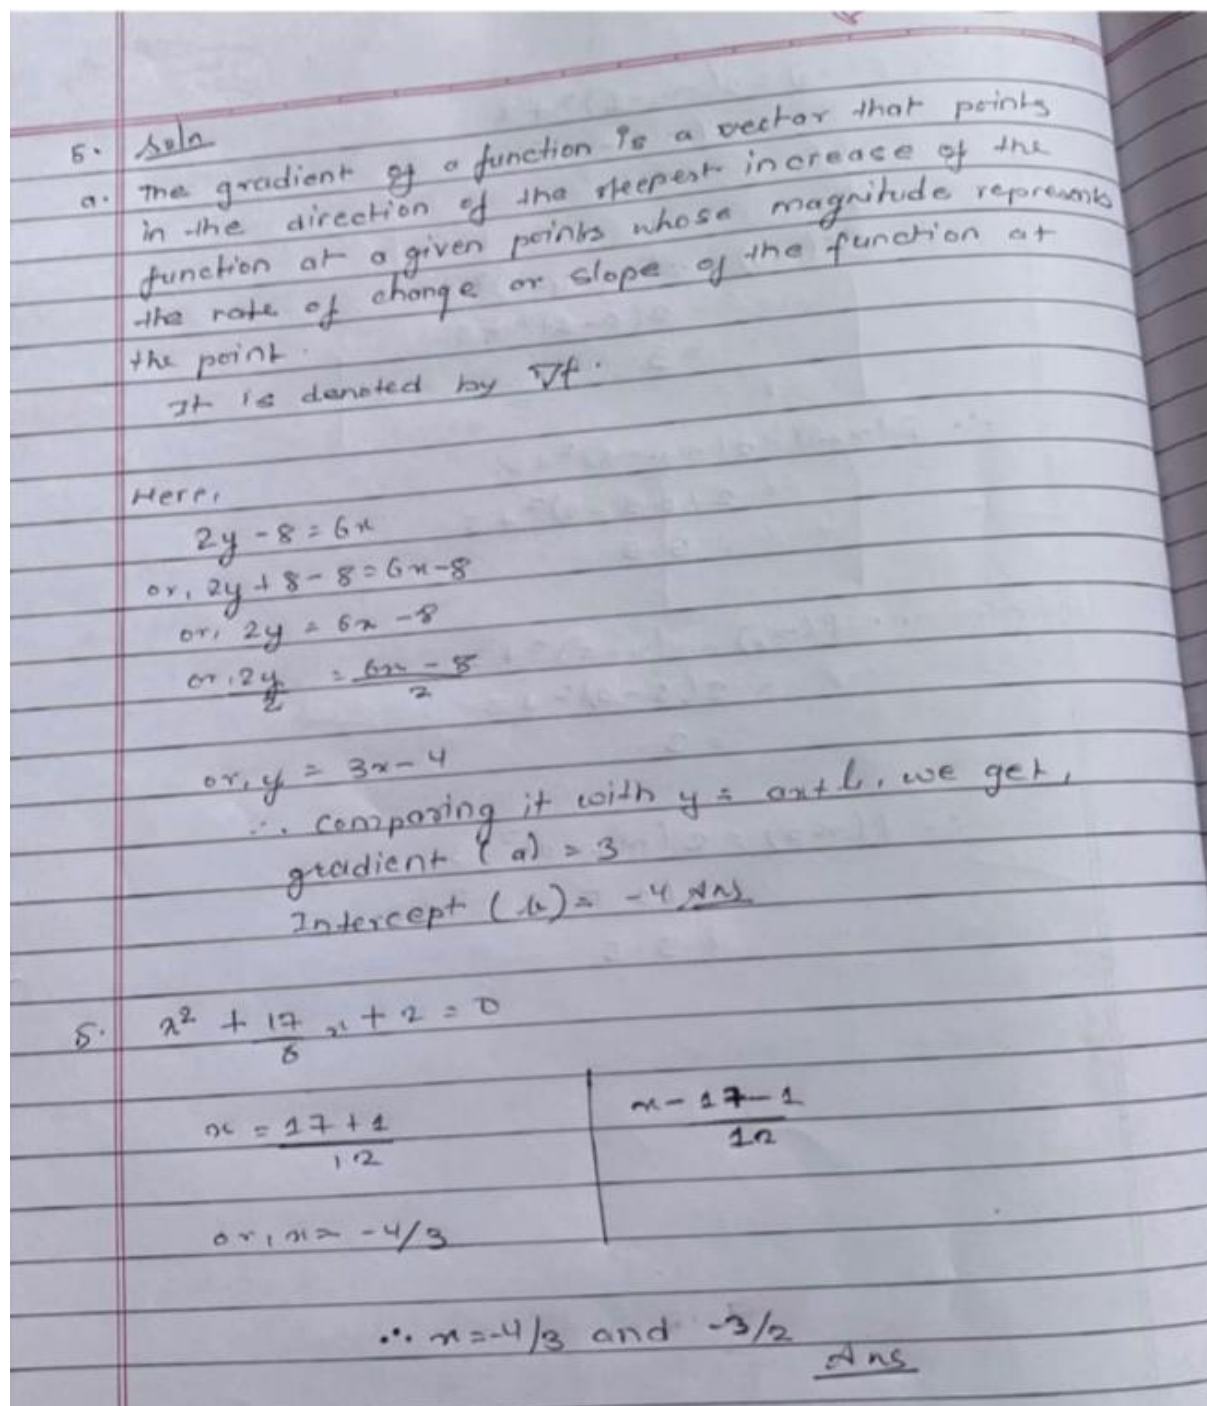 5. Soln
a. The gradient of a function is a vector that points
in the direction of the steepest increase of the
function at a given points whose magnitude represents
the rate of change or slope of the function at
the point.
It is denoted by ∇f.
Here,
2y - 8 = 6x
or, 2y + 8 - 8 = 6x - 8
or, 2y = 6x - 8
or, 2y/2 = 6x - 8/2
or, y = 3x - 4
∴ comparing it with y = ax + b, we get,
gradient (a) = 3
Intercept (b) = -4 Ans
5. x² + 17/6 x + 2 = 0
x = 17 + 1/12 x - 17 - 1/12
or, x = -4/3
∴ x = -4/3 and -3/2
Ans